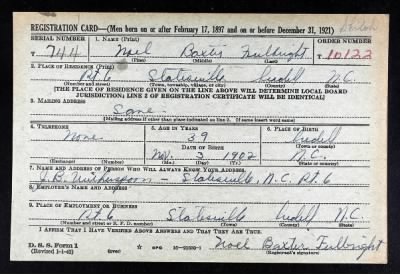 REGISTRATION CARD—(Men born on or after February 17, 1897 and on or before December 31, 1921)
SERIAL NUMBER 1. NAME (Print) ORDER NUMBER
T 744 Noel Baxter Fulbright T 10122
(First) (Middle) (Last)
2. PLACE OF RESIDENCE (Print)
Rt. 6 Statesville Iredell N.C.
(Number and street) (Town, township, village, or city) (County) (State)
[THE PLACE OF RESIDENCE GIVEN ON THE LINE ABOVE WILL DETERMINE LOCAL BOARD
JURISDICTION; LINE 2 OF REGISTRATION CERTIFICATE WILL BE IDENTICAL]
3. MAILING ADDRESS
Same
[Mailing address if other than place indicated on line 2. If same insert word same]
4. TELEPHONE 5. AGE IN YEARS 6. PLACE OF BIRTH
None 39 Iredell
DATE OF BIRTH (Town or county)
Nov. 3 1902 N.C.
(Exchange) (Number) (Mo.) (Day) (Yr.) (State or country)
7. NAME AND ADDRESS OF PERSON WHO WILL ALWAYS KNOW YOUR ADDRESS
J.B. Witherspoon - Statesville, N.C. Rt. 6
8. EMPLOYER'S NAME AND ADDRESS
9. PLACE OF EMPLOYMENT OR BUSINESS
Rt. 6 Statesville Iredell N.C.
(Number and street or R. F. D. number) (Town) (County) (State)
I AFFIRM THAT I HAVE VERIFIED ABOVE ANSWERS AND THAT THEY ARE TRUE.
D. S. S. Form 1
(Revised 1-1-42) (over) Noel Baxter Fulbright
(Registrant's signature)